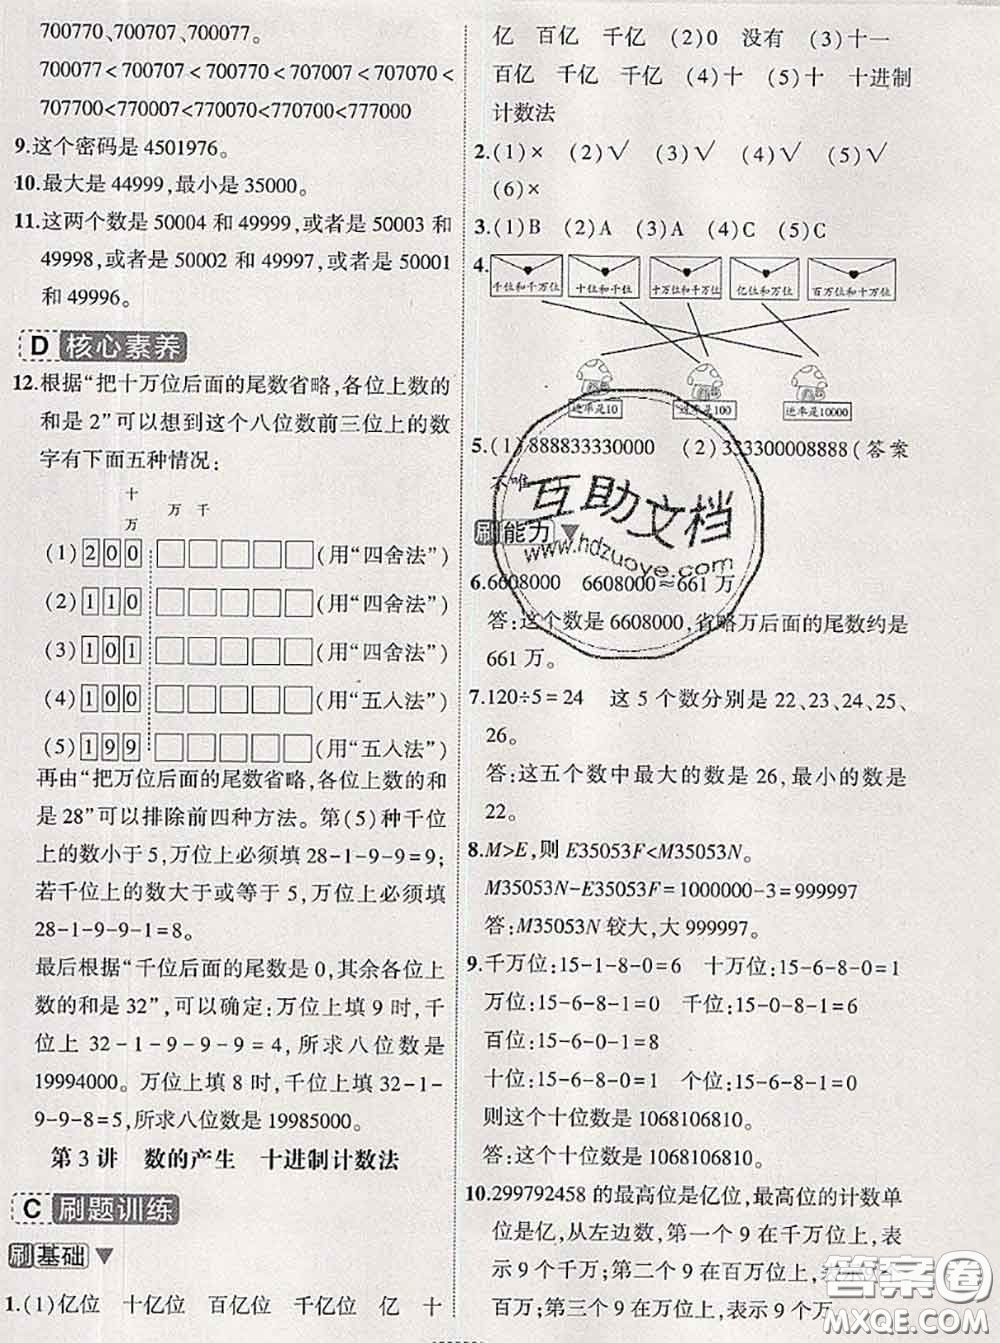 700770、700707、700077。
700077<700707<700770<707007<707070<
707700<770007<770070<770700<777000
9.这个密码是4501976。
10.最大是44999,最小是35000。
11.这两个数是50004和49999,或者是50003和
49998,或者是50002和49997,或者是50001
和49996。
D 核心素养
12.根据“把十万位后面的尾数省略,各位上数的
和是2”可以想到这个八位数前三位上的数
字有下面五种情况:
十万 万 千
(1)200□□□□□(用“四舍法”)
(2)110□□□□□(用“四舍法”)
(3)101□□□□□(用“四舍法”)
(4)100□□□□□(用“五入法”)
(5)199□□□□□(用“五入法”)
再由“把万位后面的尾数省略,各位上数的和
是28”可以排除前四种方法。第(5)种千位
上的数小于5,万位上必须填28-1-9-9=9;
若千位上的数大于或等于5,万位上必须填
28-1-9-9-1=8。
最后根据“千位后面的尾数是0,其余各位上
数的和是32”,可以确定:万位上填9时,千
位上 32-1-9-9-9=4,所求八位数是
19994000。万位上填8时,千位上填32-1-
9-9-8=5,所求八位数是19985000。
第3讲 数的产生 十进制计数法
C 刷题训练
刷基础
1.(1)亿位 十亿位 百亿位 千亿位 亿 十
亿 百亿 千亿 (2)0 没有 (3)十一
百亿 千亿 千亿 (4)十 (5)十 十进制
计数法
2.(1)× (2)√ (3)√ (4)√ (5)√
(6)×
3.(1)B (2)A (3)A (4)C (5)C
4.
千位和千万位 十位和千位 十万位和千万位 亿位和万位 百万位和十万位
进率是10 进率是100 进率是10000
5.(1)888833330000 (2)333300008888(答案
不唯一
刷能力
6.6608000 6608000≈661万
答:这个数是6608000,省略万后面的尾数约是
661万。
7.120÷5=24 这5个数分别是22、23、24、25、
26。
答:这五个数中最大的数是26,最小的数是
22。
8.M>E,则E35053F<M35053N。
M35053N-E35053F=1000000-3=999997
答:M35053N较大,大999997。
9.千万位:15-1-8-0=6 十万位:15-6-8-0=1
万位:15-6-8-1=0 千位:15-0-8-1=6
百位:15-6-0-1=8
十位:15-6-8=1 个位:15-6-8-1=0
则这个十位数是1068106810。
答:这个十位数是1068106810。
10.299792458的最高位是亿位,最高位的计数单
位是亿,从左边数,第一个9在千万位上,表
示9个千万;第二个9在百万位上,表示
百万;第三个9在万位上,表示9个万
互助文档
www.hdzuoye.com
答案卷
MXQE.COM